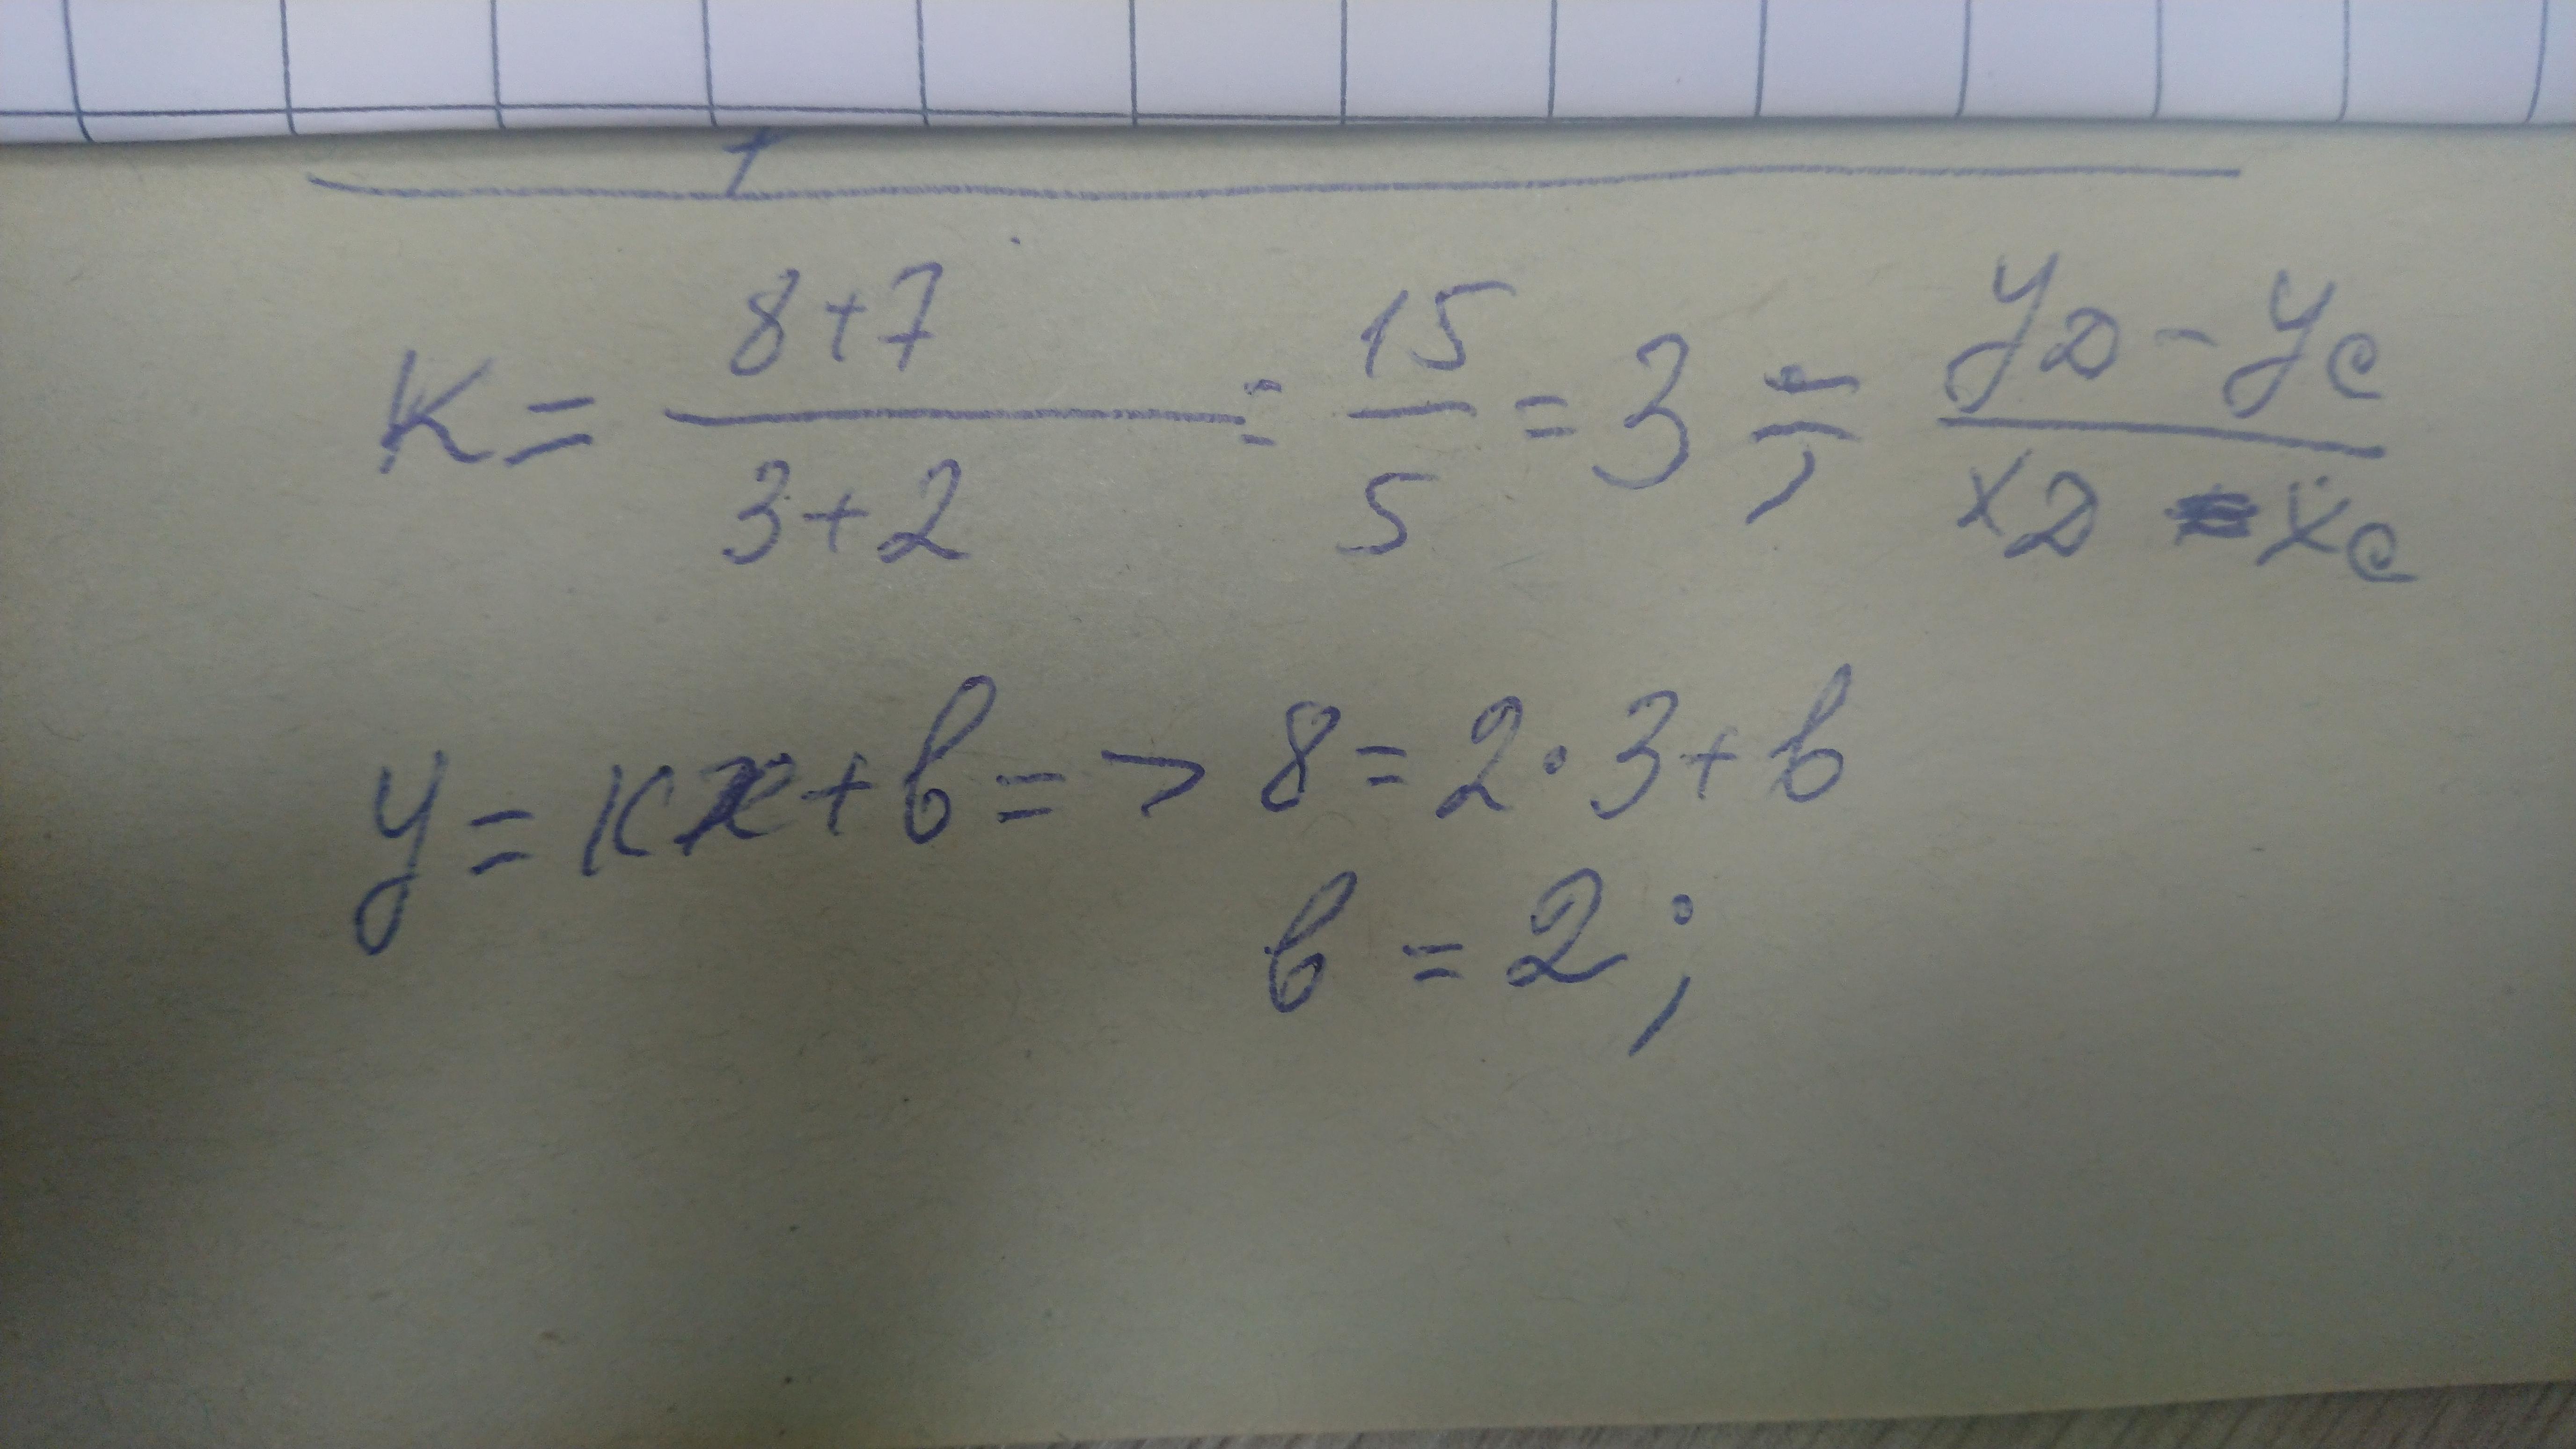 K = (8+7)/(3+2) = 15/5 = 3 ; = (yD - yC)/(xD - xC)
y = кx + b => 8 = 2·3 + b
b = 2;